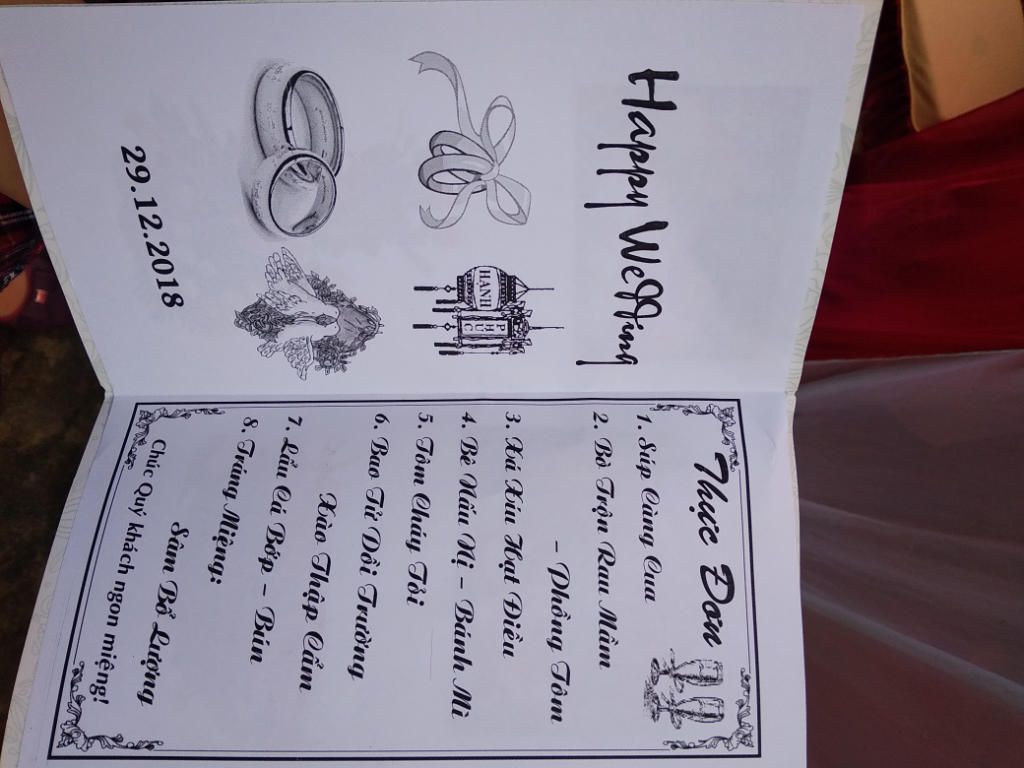 Happy Wedding
HẠNH
PHÚC
29.12.2018
Thực Đơn
1. Súp Càng Cua
2. Bò Trộn Rau Mầm
– Phồng Tôm
3. Xá Xíu Hạt Điều
4. Bê Nấu Nị – Bánh Mì
5. Tôm Cháy Tỏi
6. Bao Tử Dồi Trường
Xào Thập Cẩm
7. Lẩu Cá Bớp – Bún
8. Tráng Miệng:
Sâm Bổ Lượng
Chúc Quý khách ngon miệng!